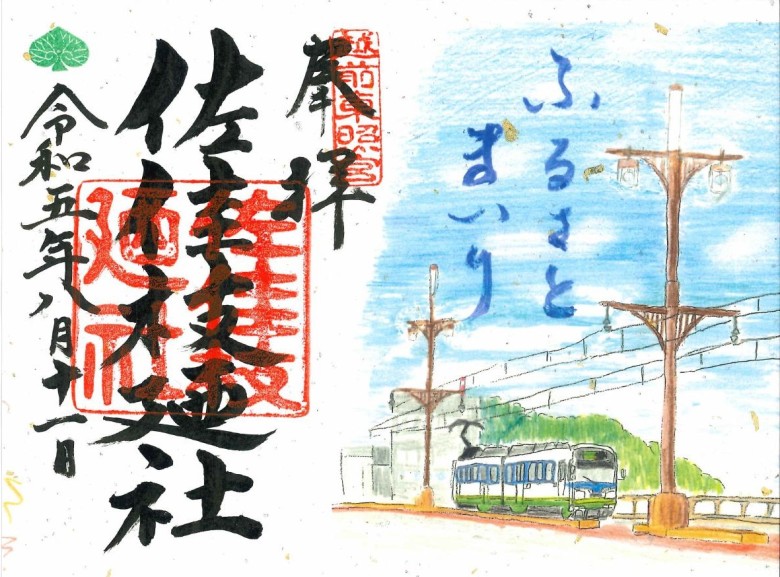 ふるさと
まいり
越前東照宮
奉拝
佐佳枝廼社
佐佳枝
廼社
令和五年八月十一日